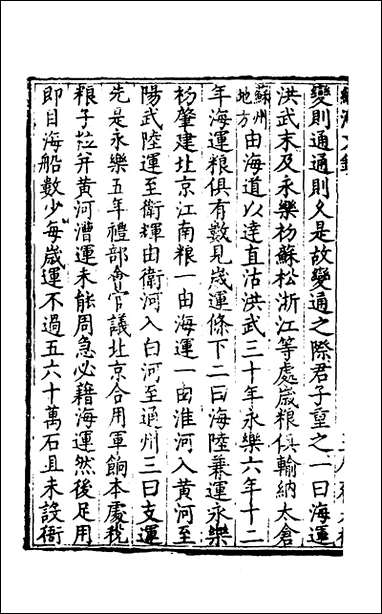 變則通通則久是故變通之際君子重之一曰海運
洪武末及永樂初蘇松浙江等處歲粮俱輸納太倉
蘇州
地方
由海道以達直沽洪武三十年永樂六年十二
年海運粮俱有數見歲運條下二曰海陸兼運永樂
初肇建北京江南粮一由海運一由淮河入黄河至
陽武陸運至衛輝由衛河入白河至通州三曰支運
先是永樂五年禮部會官議北京合用軍餉本處稅
粮子粒并黄河漕運未能周急必藉海運然後足用
即目海船數少每歲運不過五六十萬石且未設衙